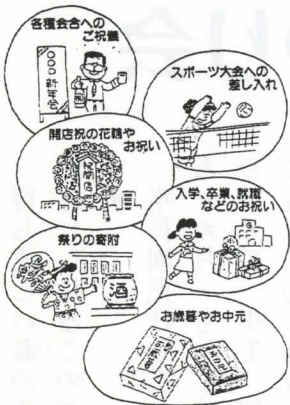 各種会合への
ご祝儀
○○○新年会
スポーツ大会への
差し入れ
開店祝の花輪や
お祝い
祝開店
入学、卒業、就職
などのお祝い
祭りの寄附
酒
お歳暮やお中元